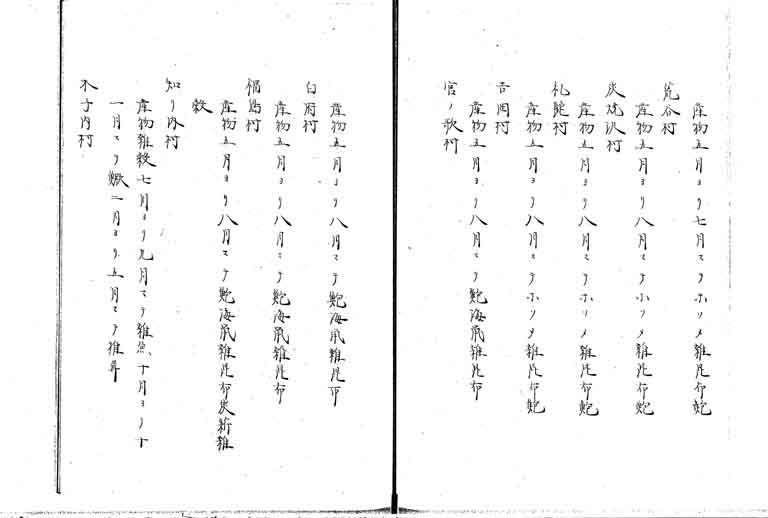 産物五月ヨリ七月マテホソメ雑昆布鮑
荒谷村
産物五月ヨリ八月マテホソメ雑昆布鮑
炭焼沢村
産物五月ヨリ八月マテホソメ雑昆布鮑
札前村
産物五月ヨリ八月マテホソメ雑昆布鮑
吉岡村
産物五月ヨリ八月マテ鮑海鼠雑昆布
宮ノ歌村
産物五月ヨリ八月マテ鮑海鼠雑昆布
白府村
産物五月ヨリ八月マテ鮑海鼠雑昆布
福島村
産物五月ヨリ八月マテ鮑海鼠雑昆布炭薪雑
穀
知リ内村
産物雑穀七月ヨリ九月マテ雑魚、十月ヨリ十
一月マテ鰤二月ヨリ五月マテ椎茸
木子内村